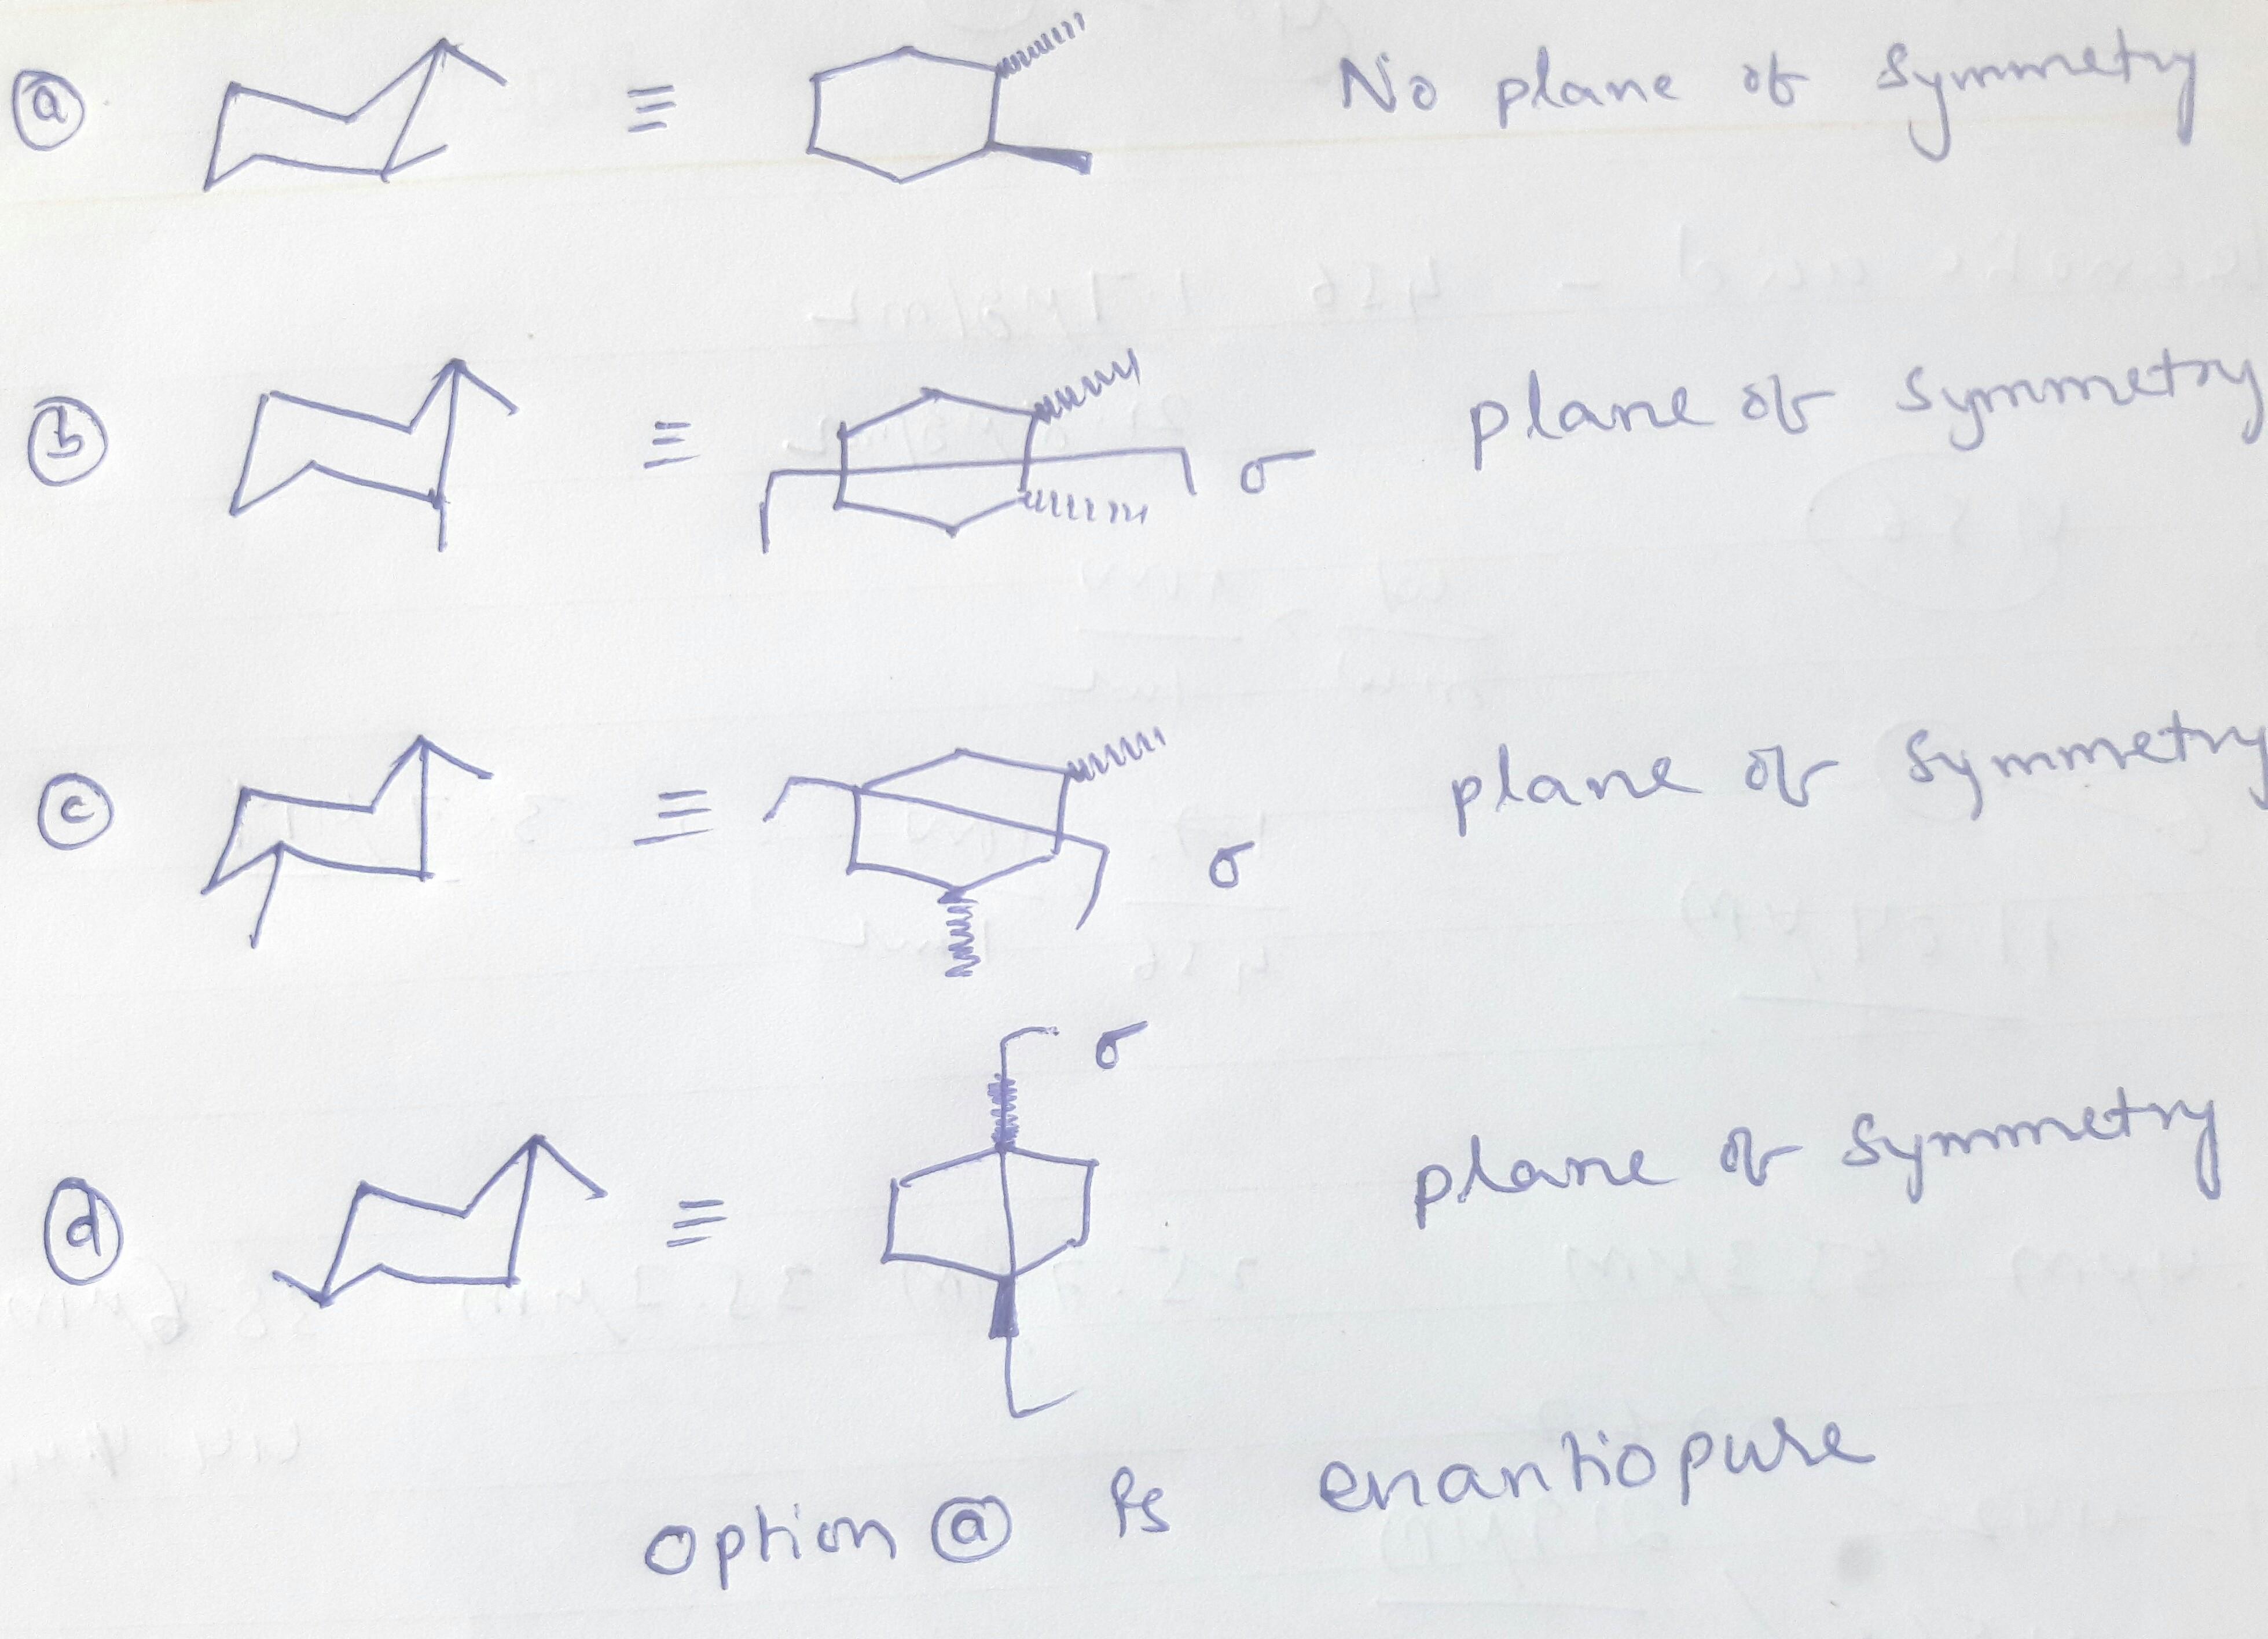 ⓐ ≡ No plane of symmetry
ⓑ ≡ σ plane of symmetry
ⓒ ≡ σ plane of symmetry
ⓓ ≡ σ plane of symmetry
option ⓐ is enantiopure